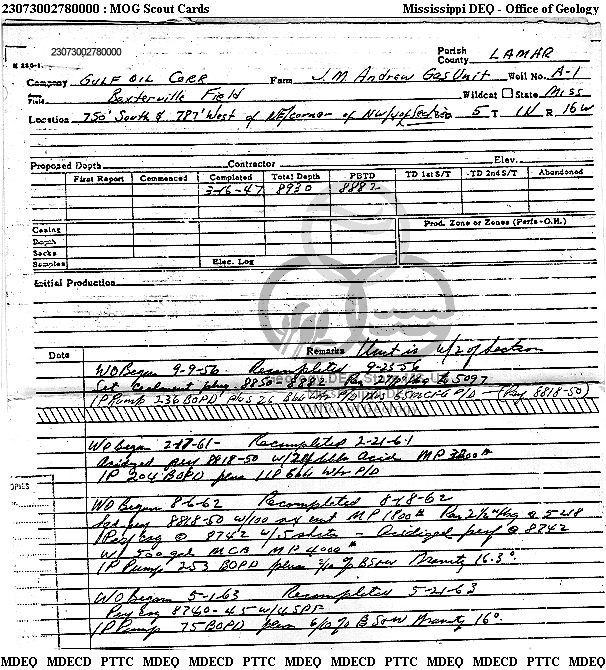 23073002780000 : MOG Scout Cards Mississippi DEQ - Office of Geology
23073002780000
Parish
County LAMAR
Company GULF OIL CORP Farm J.M. Andrew Gas Unit Well No. A-1
Field Baxterville Field Wildcat State Miss
Location 750' South & 787' West of NE/corner of NW/4 of Section 5 T 1N R 16W
Proposed Depth Contractor Elev.
First Report Commenced Completed Total Depth PBTD TD 1st S/T TD 2nd S/T Abandoned
3-16-47 8930 8882
Casing Prod. Zone or Zones (Perfs-O.H.)
Depth
Sacks
Samples Elec. Log
Initial Production
Date Remarks Unit is W/2 of Section
WO Began 9-9-56 Recompleted 9-23-56
Set Cement plug 8850-8882 Ran 2 tbg to 5097
IP Pump 236 BOPD Plus 26 Bbls Wtr P/D (Pay 8818-50)
WO Began 2-18-61- Recompleted 2-21-61
Acidized pay 8818-50 w/ Acid MP #
IP 204 BOPD plus 118 Bbls Wtr P/D
WO Began 8-6-62 Recompleted 8-18-62
Sqd pay 8818-50 w/100 sx cmt MP 1800# Ran 2½" tbg @ 5218
Pay @ 8742 w/5 shots - Acidized perf @ 8742
W/ 500 gal MCA MP 4000#
IP Pump 253 BOPD plus % BS&W Gravity 16.3°
WO Began 5-1-63 Recompleted 5-21-63
Pay 8740-45 w/4 SPF
IP Pump 75 BOPD plus % BS&W Gravity 16°
COPIES
MDEQ MDECD PTTC MDEQ MDECD PTTC MDEQ MDECD PTTC MDEQ MDECD PTTC MDEQ